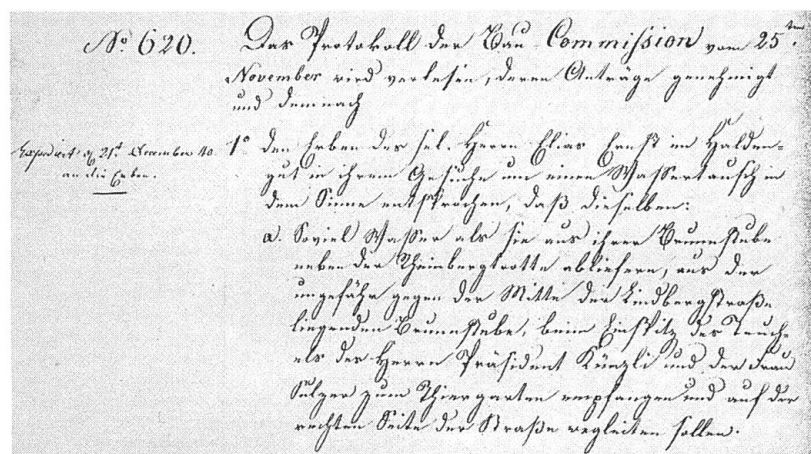 No 620.
Das Protokoll der Bau-Commission vom 25ten
November wird verlesen, deren Anträge genehmigt
und demnach
Expedirt d. 21t. December 40
an die Erben.
1o den Erben des sel. Herrn Elias Ernst im Halden=
gut in ihrem Gesuche um einen Wassertausch in
dem Sinne entsprochen, daß dieselben:
a. Soviel Wasser als sie aus ihrer Brunnstube
neben der Rheinbergtrotte abliefern, aus der
ungefähr gegen der Mitte der Lindbergstraße
liegenden Brunnstube, beim Einspitz des Teuch=
els der Herrn Präsident Künzli und der Frau
Sulzer zum Thiergarten empfangen und auf der
rechten Seite der Straße wegleiten sollen.